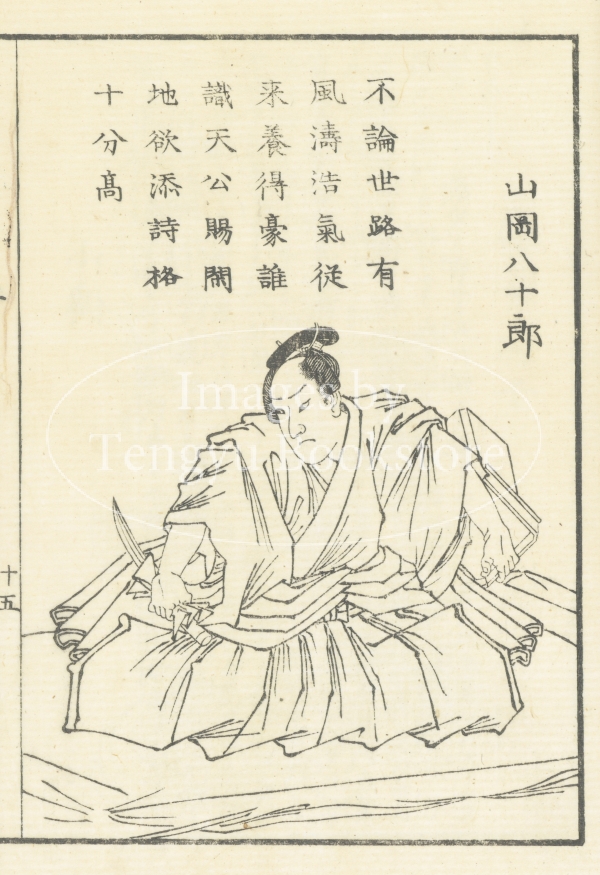 山岡八十郎
不論世路有
風濤浩氣従
来養得豪誰
識天公賜閑
地欲添詩格
十分髙
十五
Images by
Tengyu Bookstore